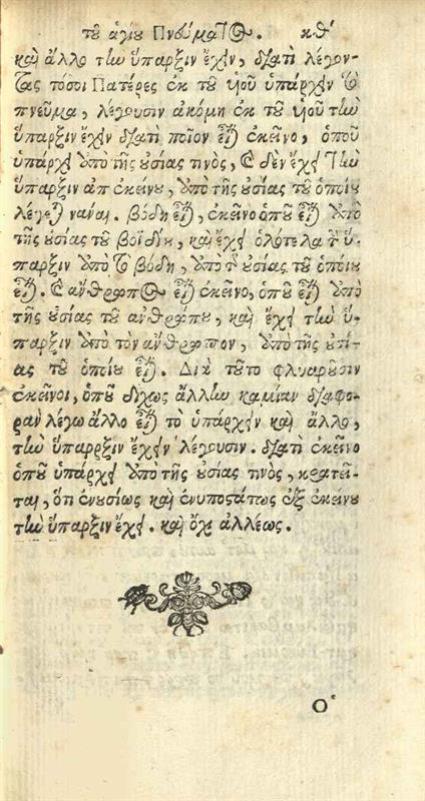 τοῦ ἁγίου Πνεύματος. κθʹ
καὶ ἄλλο τὴν ὕπαρξιν ἔχῃν, διατὶ λέγον-
τας τόσοι Πατέρες ἐκ τοῦ υἱοῦ ὑπάρχῃν τὸ
πνεῦμα, λέγουσιν ἀκόμη ἐκ τοῦ υἱοῦ τὴν
ὕπαρξιν ἔχῃν διατὶ ποῖον εἶναι ἐκεῖνο, ὁποῦ
ὑπάρχῃ ἀπὸ τῆς οὐσίας τινὸς, καὶ δὲν ἔχῃ τὴν
ὕπαρξιν ἀπ ἐκείνου, ἀπὸ τῆς οὐσίας τοῦ ὁποίου
λέγεται νἆναι. βόδη εἶναι, ἐκεῖνο ὁποῦ εἶναι ἀπὸ
τῆς οὐσίας τοῦ βοϊδίου, καὶ ἔχῃ ὁλότελα τὴν ὕ-
παρξιν ἀπὸ τὸ βόδη, ἀπὸ τὴν οὐσίας τοῦ ὁποίου
εἶναι. καὶ ἄνθρωπος εἶναι ἐκεῖνο, ὁποῦ εἶναι ἀπὸ
τῆς οὐσίας τοῦ ἀνθρώπου, καὶ ἔχῃ τὴν ὕ-
παρξιν ἀπὸ τὸν ἄνθρωπον, ἀπὸ τῆς οὐσί-
ας τοῦ ὁποίου εἶναι. Διὰ τοῦτο φλυαροῦσιν
ἐκεῖνοι, ὁποῦ δίχως ἄλλην καμίαν διαφο-
ρὰν λέγω ἄλλο εἶναι τὸ ὑπάρχῃν καὶ ἄλλο,
τὴν ὕπαρξιν ἔχῃν λέγουσιν. διατὶ ἐκεῖνο
ὁποῦ ὑπάρχῃ ἀπὸ τῆς οὐσίας τινὸς, κρατεῖ-
ται, ὅτι ἐνουσίως καὶ ἐνυποστάτως ἐξ ἐκείνου
τὴν ὕπαρξιν ἔχῃ. καὶ ὄχι ἀλλέως.
Ο῾